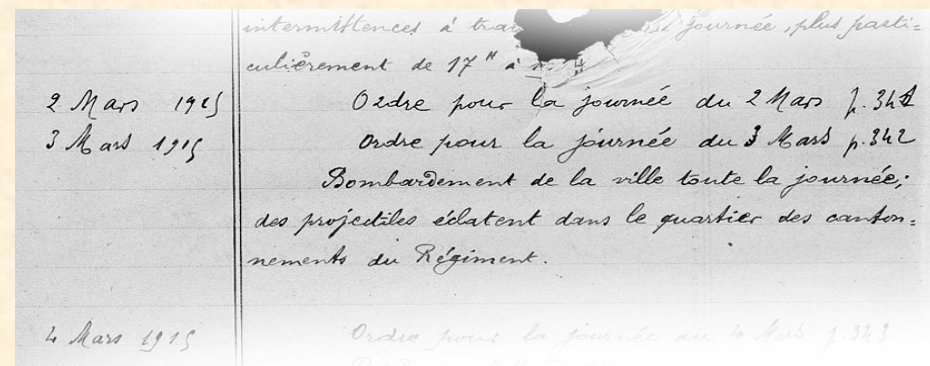 intermittences à journée, plus parti=
culièrement de 17 H à
2 Mars 1915 Ordre pour la journée du 2 Mars p. 342
3 Mars 1915 Ordre pour la journée du 3 Mars p. 342
Bombardement de la ville toute la journée;
des projectiles éclatent dans le quartier des canton=
nements du Régiment.
4 Mars 1915 Ordre pour la journée du 4 Mars p. 343